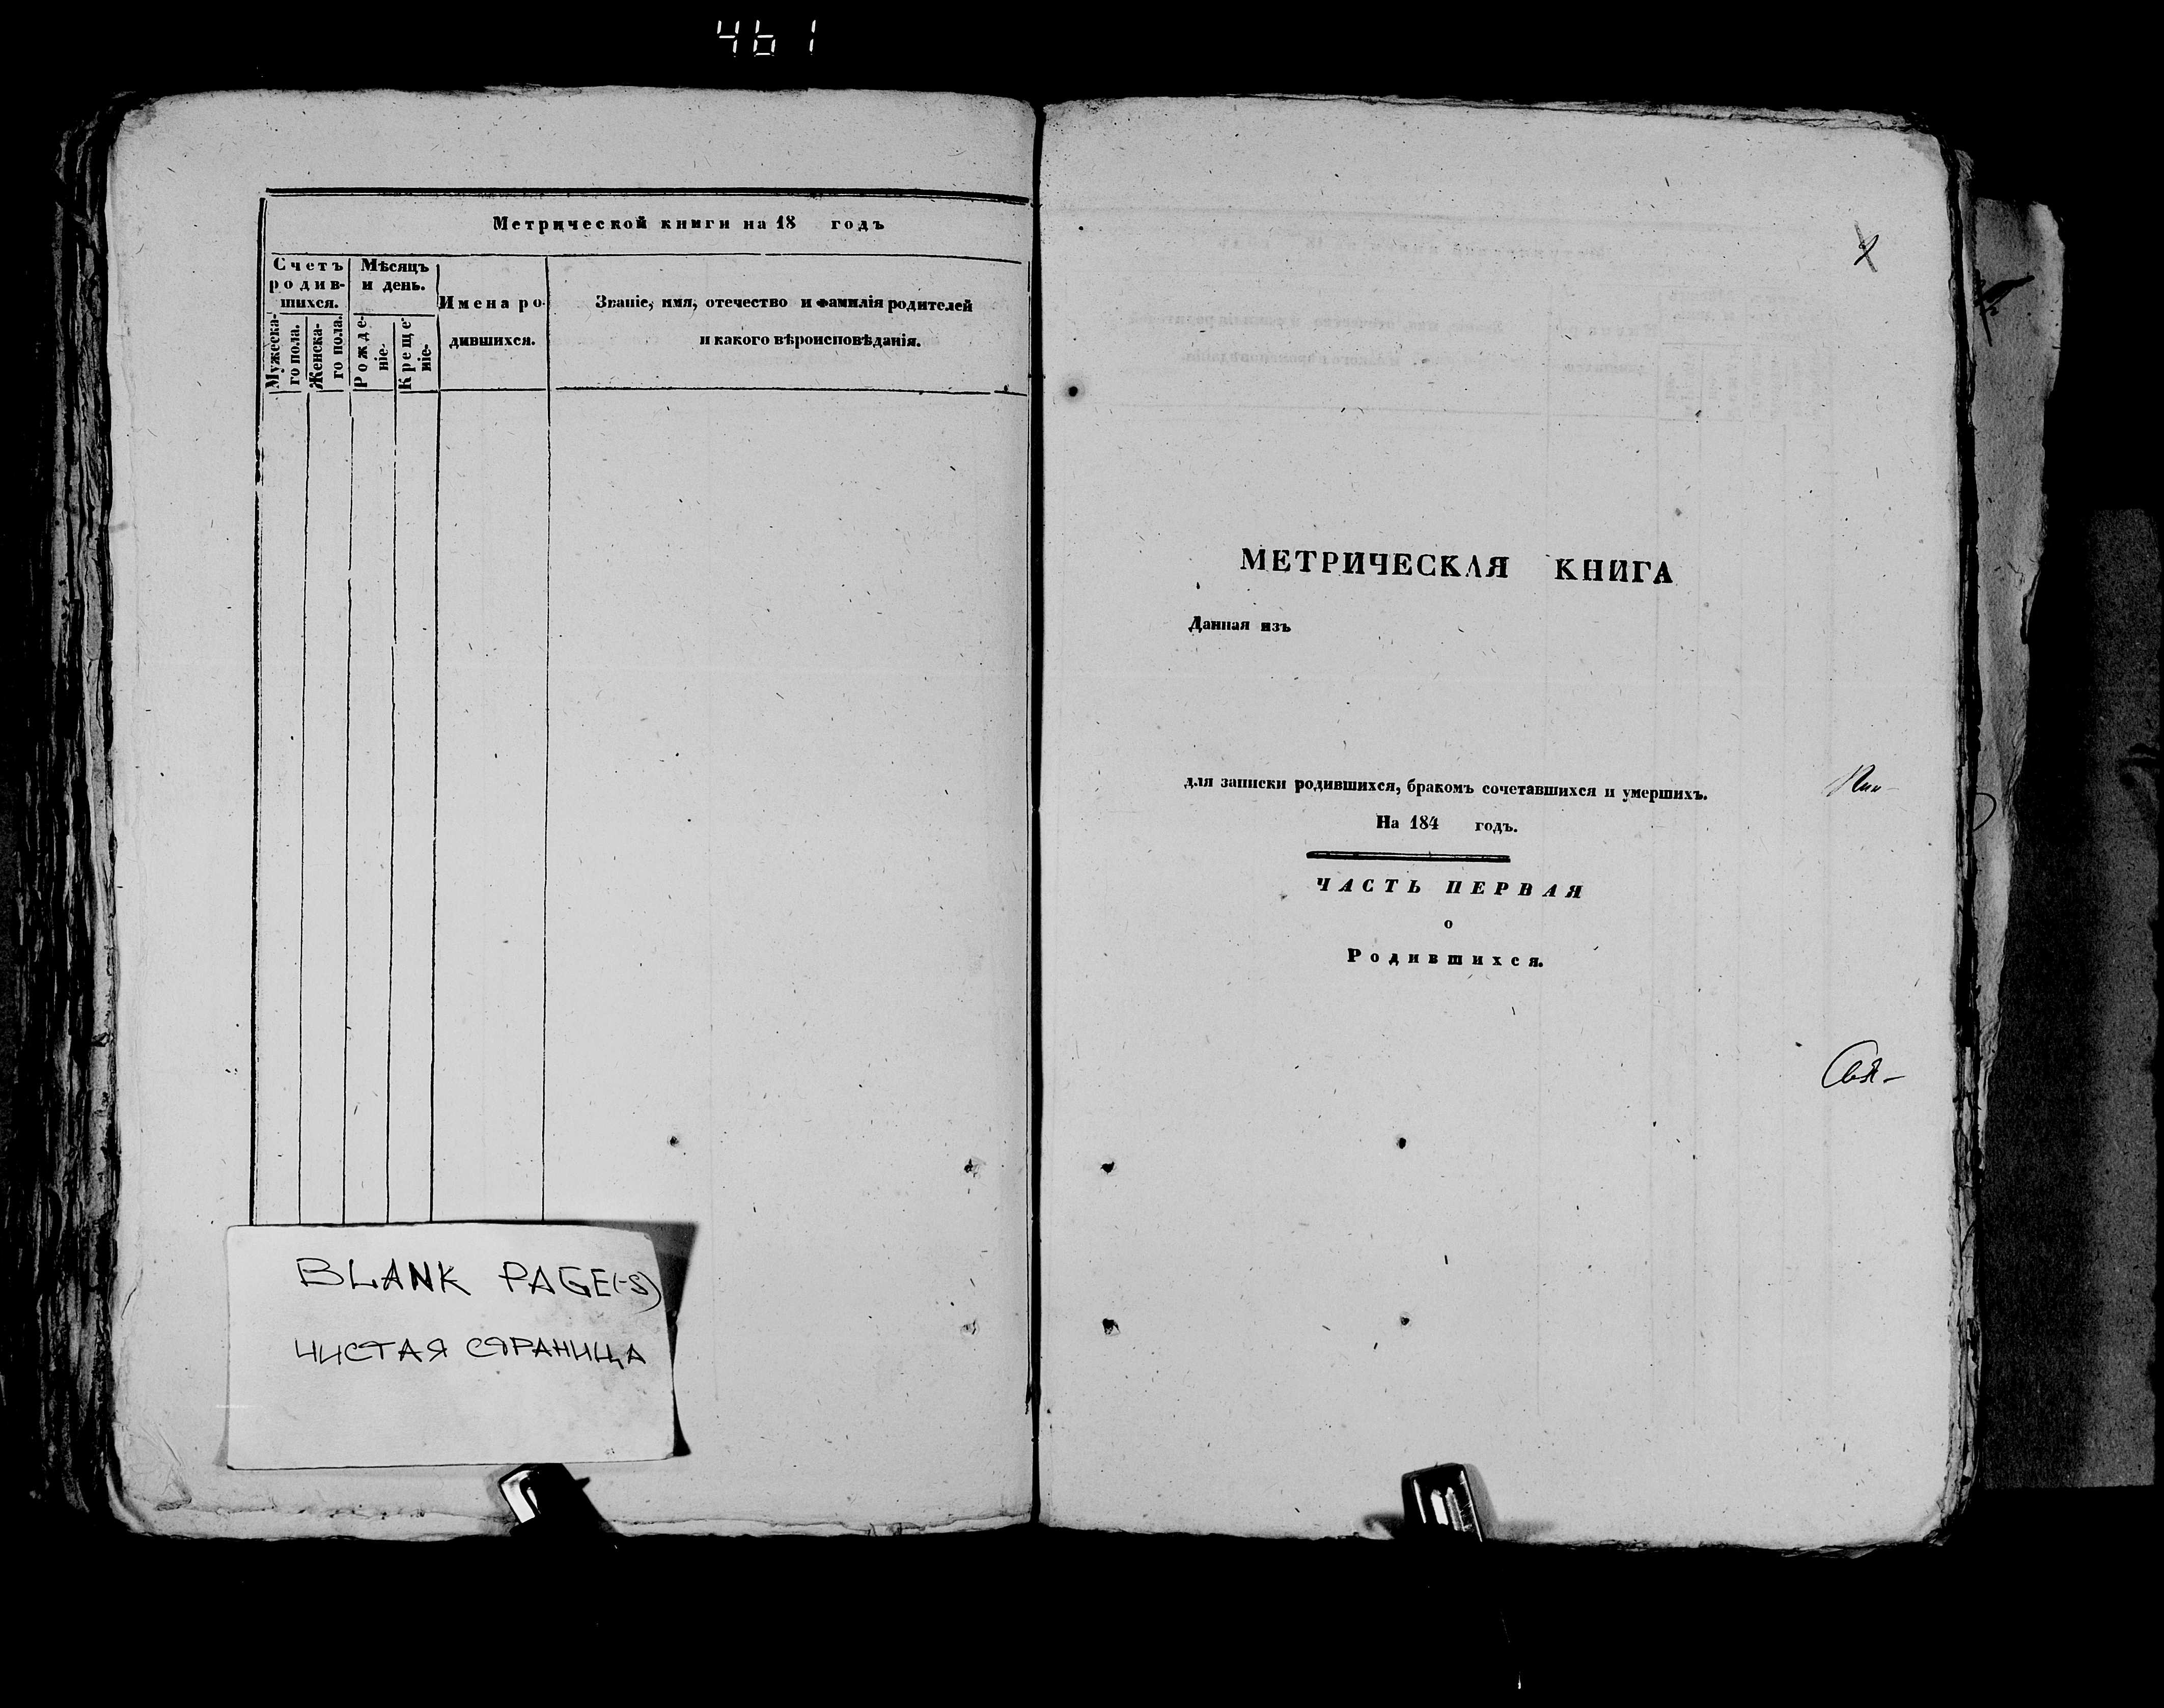 461
Метрической книги на 18 годъ
Счетъ
родив-
шихся.
Мѣсяцъ
и день.
Мужеска-
го пола.
Женска-
го пола.
Рожде-
ніе.
Креще-
ніе.
Имена ро-
дившихся.
Званіе, имя, отечество и фамилія родителей
и какого вѣроисповѣданія.
BLANK PAGE(-S)
ЧИСТАЯ СТРАНИЦА
МЕТРИЧЕСКАЯ КНИГА
Данная изъ
для записки родившихся, бракомъ сочетавшихся и умершихъ.
На 184 годъ.
ЧАСТЬ ПЕРВАЯ
о
Родившихся.